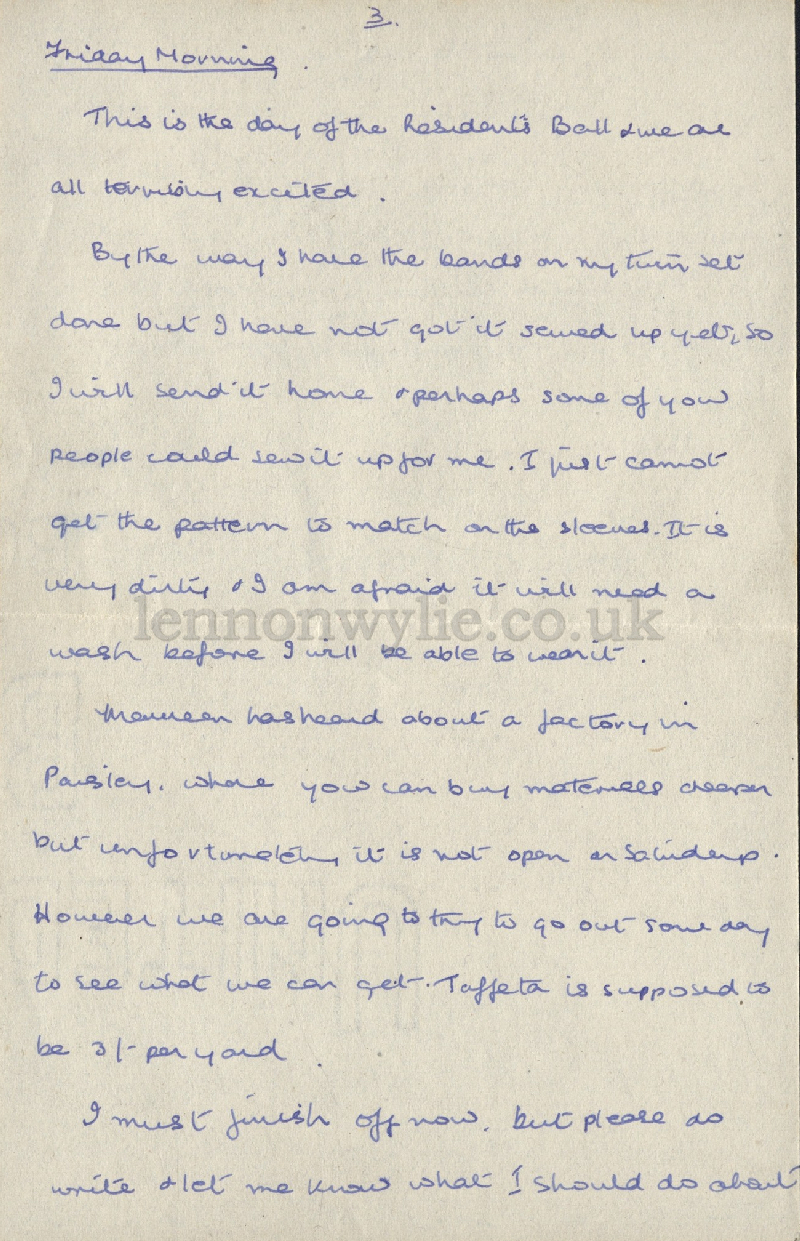 3.
Friday Morning.
This is the day of the Resident's Ball & we are
all terribly excited.
By the way I have the bands on my twin set
done but I have not got it sewed up yet, so
I will send it home & perhaps some of you
people could sew it up for me. I just cannot
get the pattern to match on the sleeves. It is
very dirty & I am afraid it will need a
lennonwylie.co.uk
wash before I will be able to wear it.
Maureen has heard about a factory in
Paisley, where you can buy materials cheaper
but unfortunately it is not open on Saturdays.
However we are going to try to go out some day
to see what we can get. Taffeta is supposed to
be 3/- per yard.
I must finish off now, but please do
write & let me know what I should do about